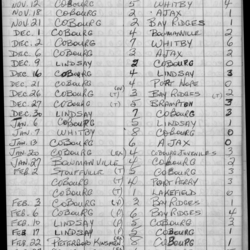 NOV. 12 COBOURG 5 WHITBY 4
NOV. 18 COBOURG 2 AJAX 1
NOV 21 COBOURG 2 BAY RIDGES
DEC. 1 COBOURG 4 BOWMANVILLE 2
DEC. 2 COBOURG 7 WHITBY 6
DEC. 6 COBOURG 3 AJAX 2
DEC. 9 LINDSAY 2 COBOURG 0
DEC. 16 COBOURG 4 LINDSAY 3
DEC. 21 COBOURG PORT HOPE 0
DEC 26 COBOURG (T) 3 BAY RIDGES 0
DEC 27 COBOURG (T) 5 BRAMPTON 3
DEC 30 LINDSAY 7 COBOURG 3
JAN 6 COBOURG 5 LINDSAY 1
JAN. 7 WHITBY 8 COBOURG 0
JAN. 13 COBOURG 6 AJAX 0
JAN 20 COBOURG COBOURG JUVENILES 3
JAN 27 BOWMANVILLE 4 COBOURG 2
FEB 2 STOUFFVILLE (T) 5 COBOURG 3
COBOURG (T) 4 PORT PERRY 3
COBOURG (T) 1 LAKEFIELD 0
FEB. 3 COBOURG (P) 2 BAY RIDGES 0
FEB. 6 COBOURG (P) 6 BAY RIDGES 4
FEB. 10 LINDSAY (P) 5 COBOURG 2
FEB 17 LINDSAY (P) 5 COBOURG 3
FEB 22 PETERBORO 8 COBOURG